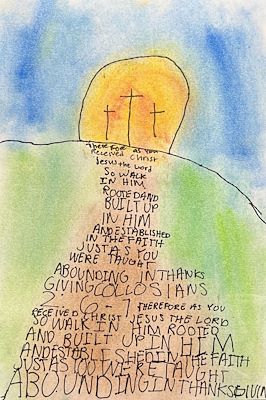 Therefore as you
Received Christ
Jesus the Lord
SO WALK
IN HIM
ROOTED AND
BUILT UP
IN HIM
AND ESTABLISHED
IN THE FAITH
JUST AS YOU
WERE TAUGHT
ABOUNDING IN THANKS
GIVING COLOSIANS
2:6-7 THEREFORE AS YOU
RECEIVED CHRIST JESUS THE LORD
SO WALK IN HIM ROOTED
AND BUILT UP IN HIM
AND ESTABLISHED IN THE FAITH
JUST AS YOU WERE TAUGHT
ABOUNDING IN THANKSGIVIN